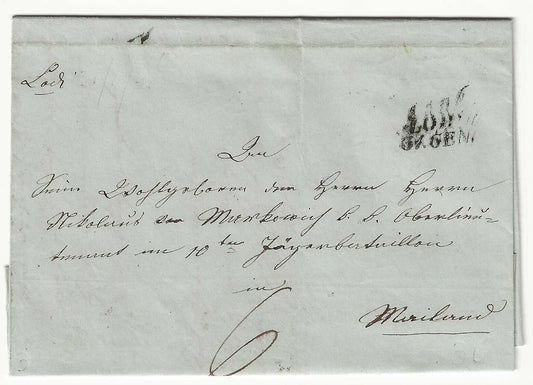 Lodi
LODI
27. GEN.
An
Seine Wohlgeboren den Herrn Herrn
Nikolaus von Markovich k. k. Oberlieu-
tenant im 10ten Jägerbataillon
in
6
Mailand